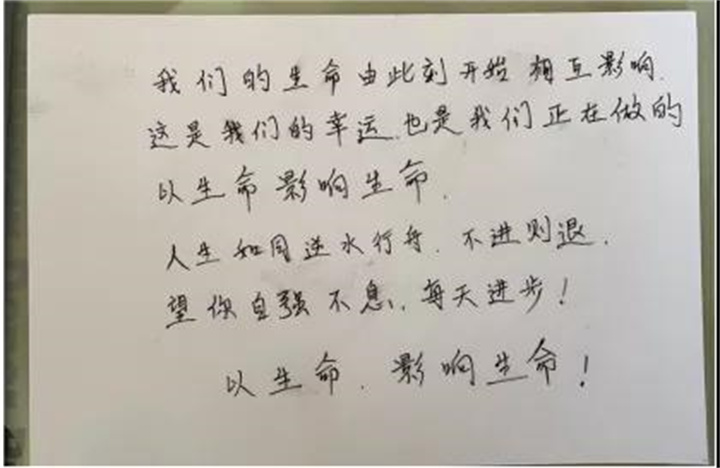 我们的生命由此刻开始相互影响.
这是我们的幸运.也是我们正在做的
以生命影响生命.
人生如同逆水行舟.不进则退.
望你自强不息.每天进步!
以生命.影响生命!